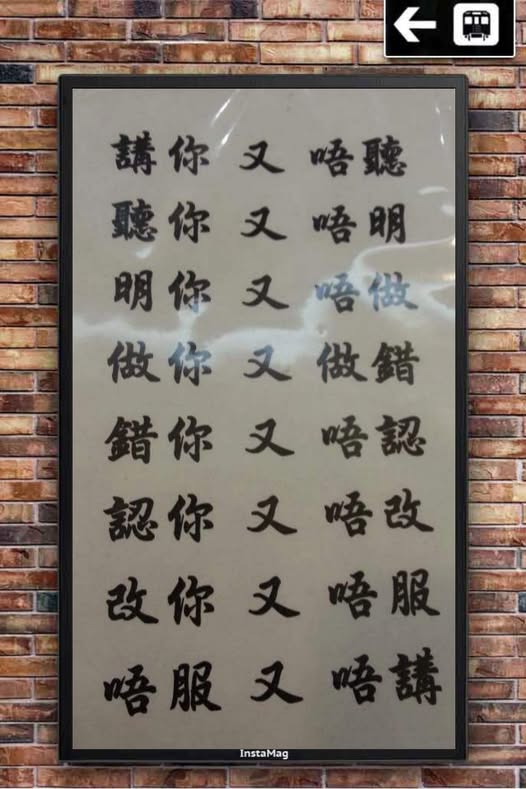 講你 又 唔聽
聽你 又 唔明
明你 又 唔做
做你 又 做錯
錯你 又 唔認
認你 又 唔改
改你 又 唔服
唔服 又 唔講
InstaMag